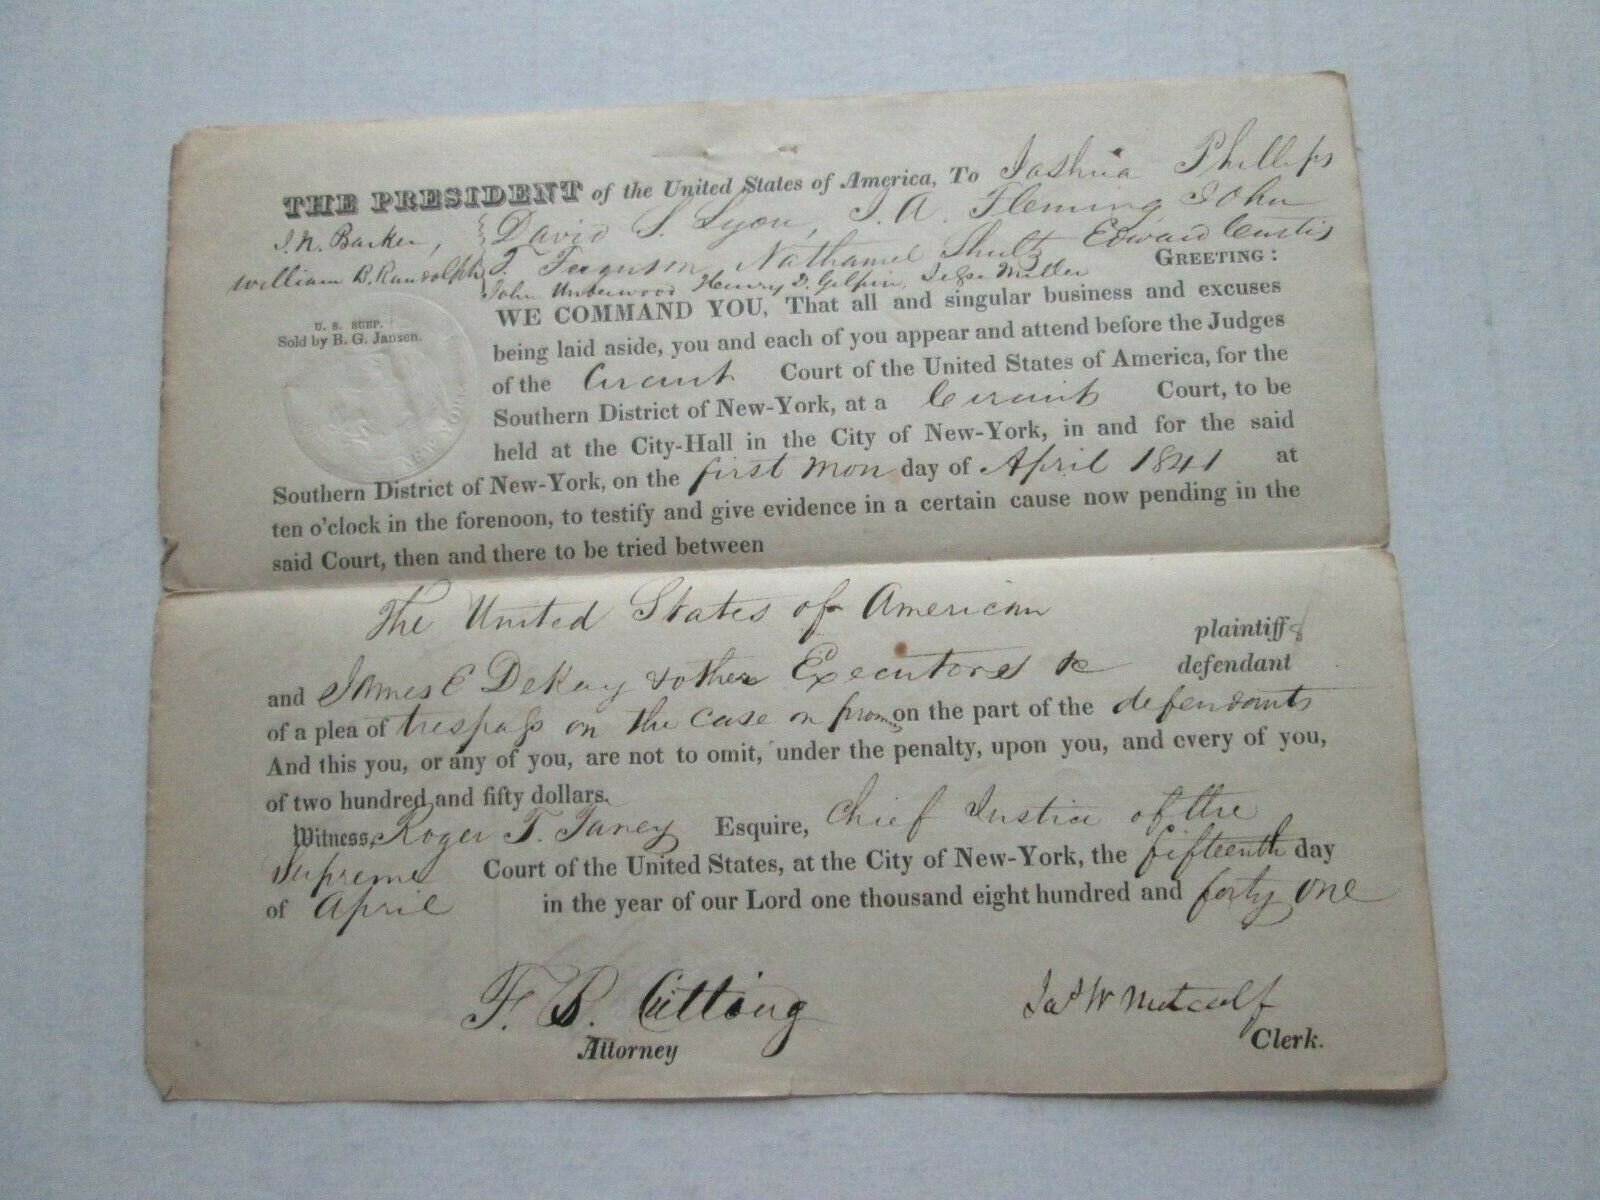 THE PRESIDENT of the United States of America, To Joshua Phillips
J. N. Barker, David S. Lyon, J. A. Fleming, John
William B. Randolph T. Ferguson, Nathaniel Shultz Edward Curtis
John Underwood Henry D. Gilpin, Jesse Miller GREETING:
U. S. SUBP.
Sold by B. G. Jansen.
WE COMMAND YOU, That all and singular business and excuses
being laid aside, you and each of you appear and attend before the Judges
of the Circuit Court of the United States of America, for the
Southern District of New-York, at a Circuit Court, to be
held at the City-Hall in the City of New-York, in and for the said
Southern District of New-York, on the first Mon day of April 1841 at
ten o'clock in the forenoon, to testify and give evidence in a certain cause now pending in the
said Court, then and there to be tried between
The United States of American
plaintiffs
and James E DeKay & others Executors &c defendant
of a plea of trespass on the case on prom. on the part of the defendants
And this you, or any of you, are not to omit, under the penalty, upon you, and every of you,
of two hundred and fifty dollars.
Witness, Roger T. Taney Esquire, Chief Justice of the
Supreme Court of the United States, at the City of New-York, the fifteenth day
of April in the year of our Lord one thousand eight hundred and forty one
F. B. Cutting Jas W Metcalf
Attorney Clerk.